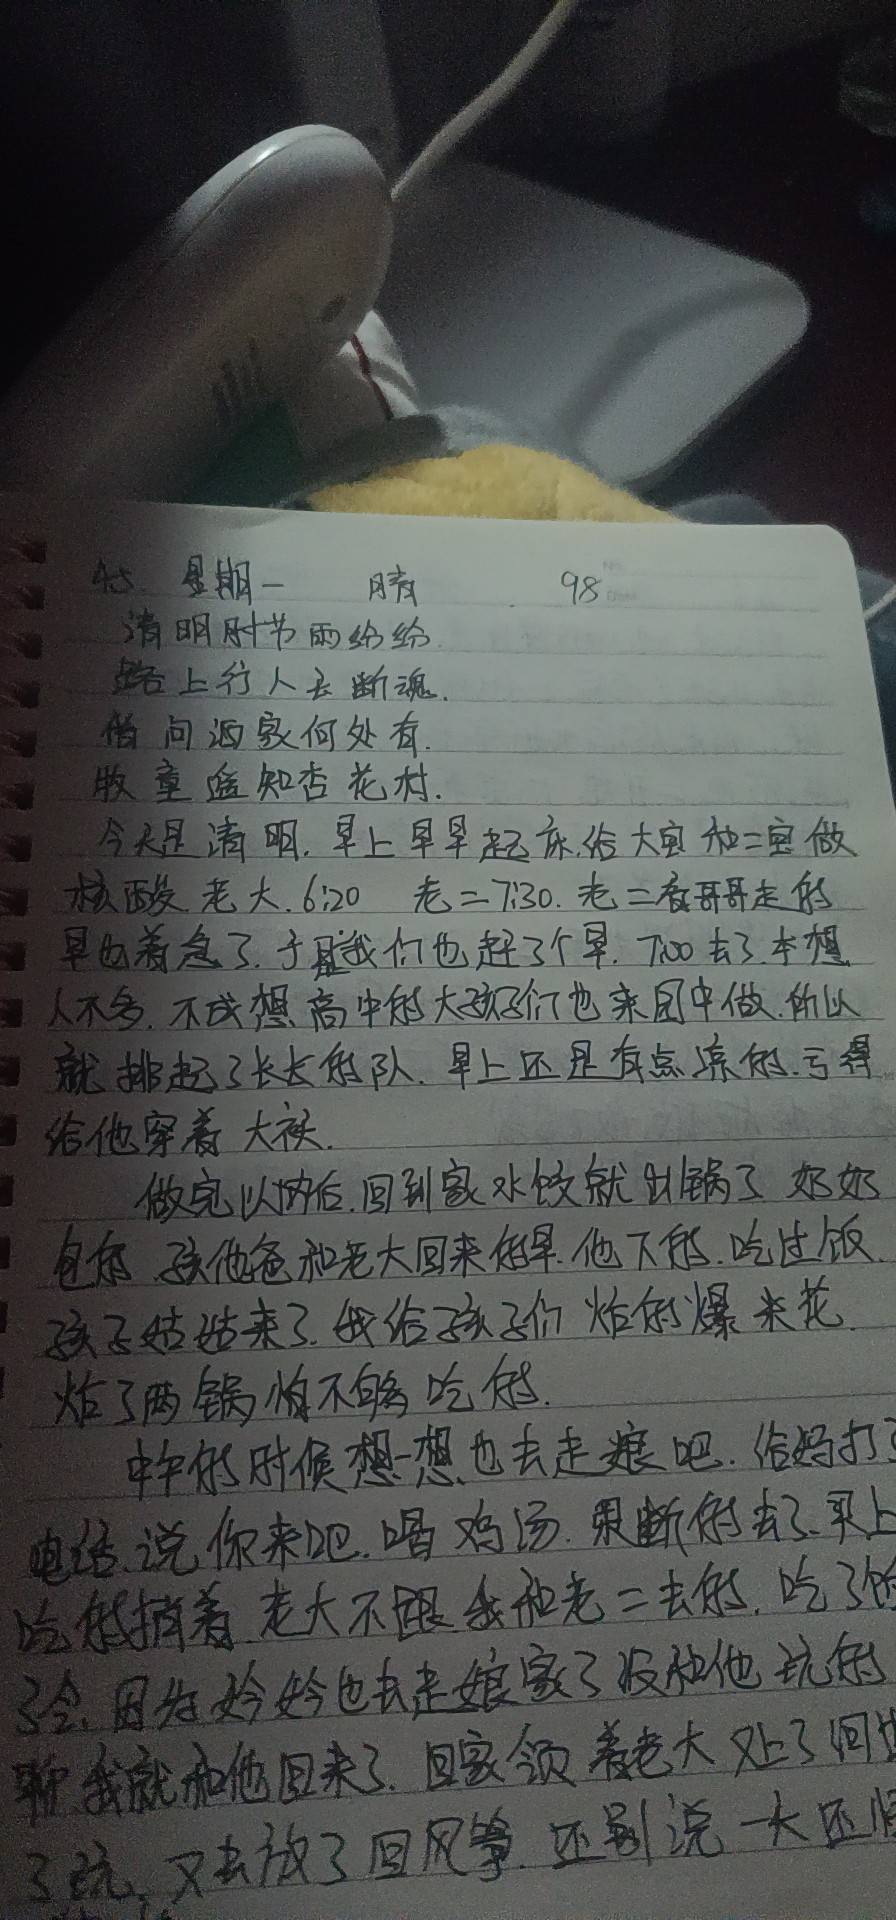 4.5. 星期一 晴 98
清明时节雨纷纷.
路上行人去断魂.
借问酒家何处有.
牧童遥知杏花村.
今天是清明.早上早早起床.给大宝和二宝做
核酸.老大.6:20 老二7:30.老二看哥哥走的
早也着急了.于是我们也赶了个早.7:00去了.本想
人不多.不成想高中的大孩子们也来园中做.所以
就排起了长长的队.早上还是有点凉的.亏得
给他穿着大袄.
做完以后.回到家水饺就出锅了.奶奶
包的.孩他爸和老大回来的早.他下的.吃过饭.
孩子姑姑来了.我给孩子们炸的爆米花.
炸了两锅怕不够吃的.
中午的时候想一想.也去走娘吧.给妈打了
电话.说你来吧.喝鸡汤.果断的去了.买上
吃的捎着.老大不跟.我和老二去的.吃了
了会.因为妗妗也去走娘家了没和他玩的
聊.我就和他回来了.回家领着老大又上了
了玩.又去放了回风筝.还别说一大还